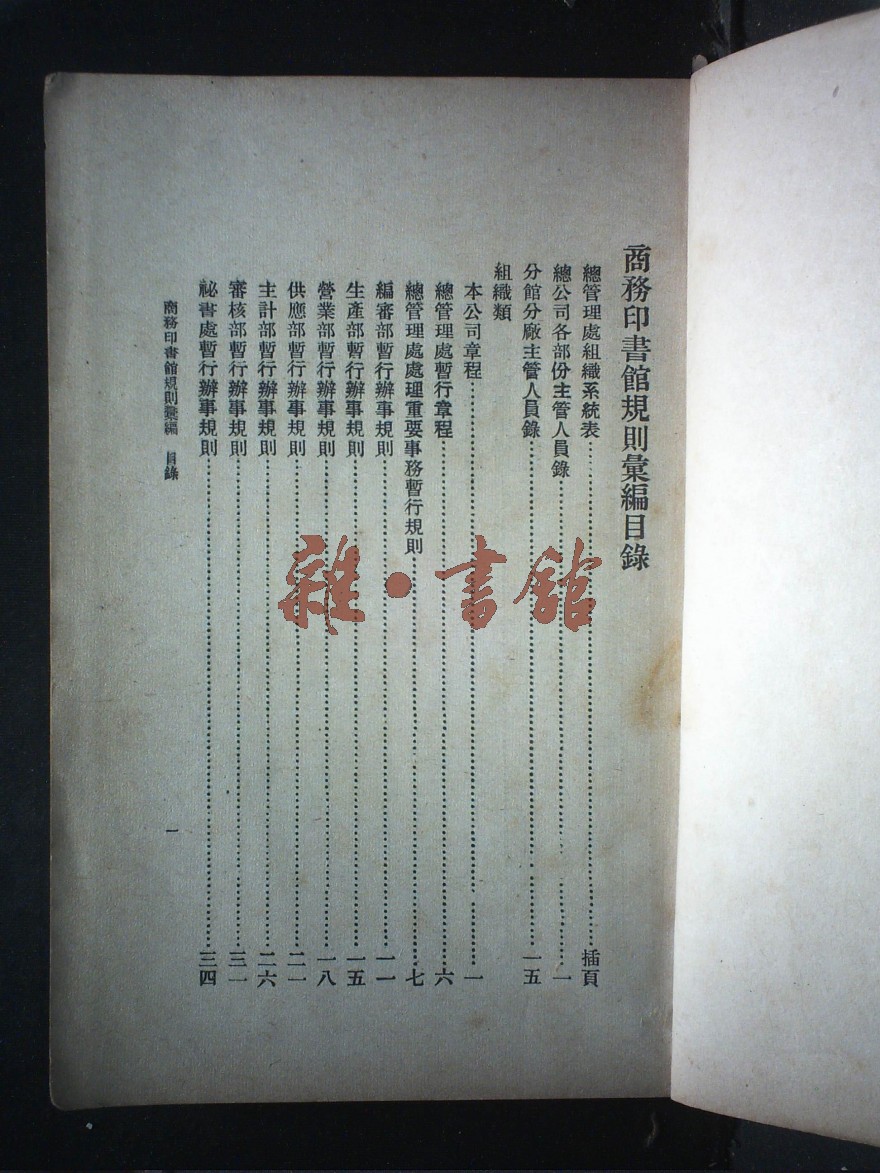 商務印書館規則彙編目錄
總管理處組織系統表……插頁
總公司各部份主管人員錄……一
分館分廠主管人員錄……一五
組織類
本公司章程……一
總管理處暫行章程……六
總管理處處理重要事務暫行規則……七
編審部暫行辦事規則……一一
生產部暫行辦事規則……一五
營業部暫行辦事規則……一八
供應部暫行辦事規則……二一
主計部暫行辦事規則……二六
審核部暫行辦事規則……三一
祕書處暫行辦事規則……三四
商務印書館規則彙編 目錄
一
雜·書館